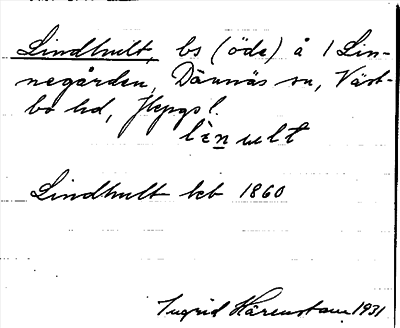 Lindhult, bs (öde) å 1 Lin-
negården, Dannäs sn, Väst-
bo hd, Jkpgs l.
lèn ult
Lindhult kb 1860
Ingrid Härenstam 1931